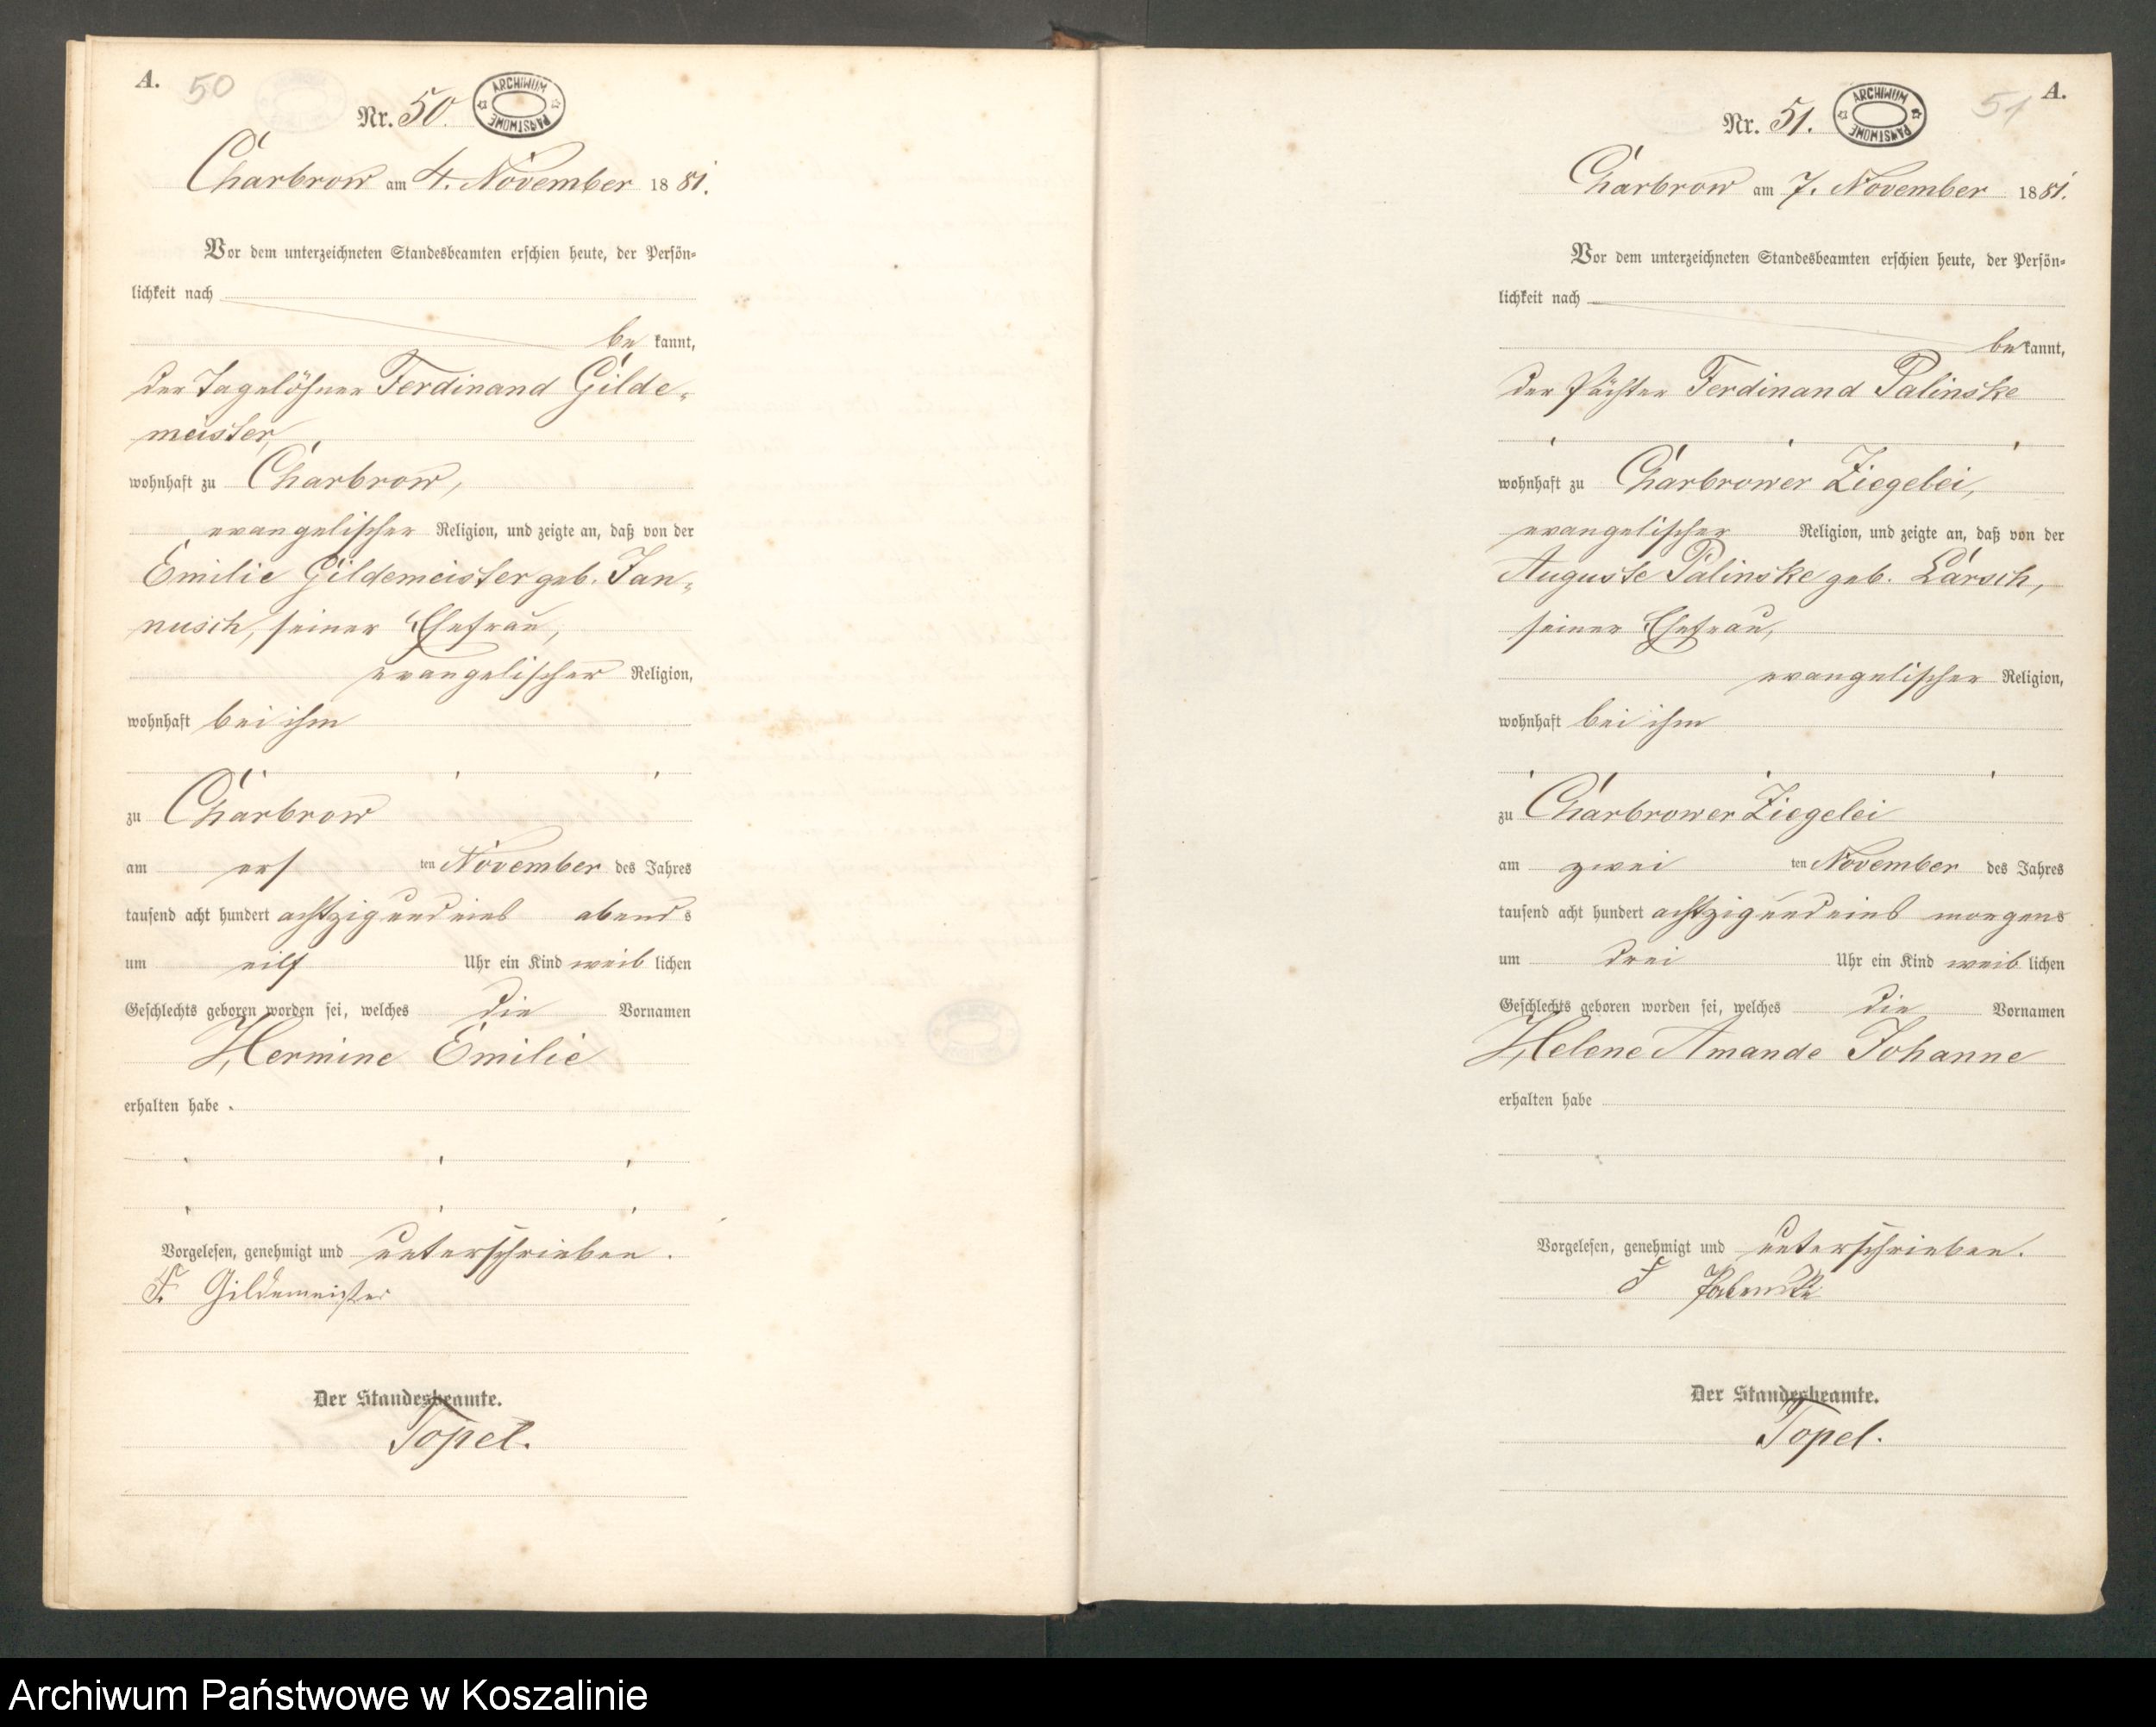 A. 50
Nr. 50.
ARCHIWUM PAŃSTWOWE
Charbrow am 4. November 1881.
Vor dem unterzeichneten Standesbeamten erschien heute, der Persön-
lichkeit nach
be kannt,
der Tagelöhner Ferdinand Gilde-
meister,
wohnhaft zu Charbrow,
evangelischer Religion, und zeigte an, daß von der
Emilie Gildemeister geb. Jan-
nusch, seiner Ehefrau,
evangelischer Religion,
wohnhaft bei ihm
zu Charbrow
am ers ten November des Jahres
tausend acht hundert achtzig und eins abends
um eilf Uhr ein Kind weib lichen
Geschlechts geboren worden sei, welches die Vornamen
Hermine Emilie
erhalten habe.
Vorgelesen, genehmigt und unterschrieben.
F. Gildemeister
Der Standesbeamte.
Topel.
51 A.
Nr. 51.
ARCHIWUM PAŃSTWOWE
Charbrow am 7. November 1881.
Vor dem unterzeichneten Standesbeamten erschien heute, der Persön-
lichkeit nach
be kannt,
der Pächter Ferdinand Palinske
wohnhaft zu Charbrower Ziegelei,
evangelischer Religion, und zeigte an, daß von der
Auguste Palinske geb. Larsch,
seiner Ehefrau,
evangelischer Religion,
wohnhaft bei ihm
zu Charbrower Ziegelei
am zwei ten November des Jahres
tausend acht hundert achtzig und eins morgens
um drei Uhr ein Kind weib lichen
Geschlechts geboren worden sei, welches die Vornamen
Helene Amande Johanne
erhalten habe
Vorgelesen, genehmigt und unterschrieben.
F
Der Standesbeamte.
Topel.
Archiwum Państwowe w Koszalinie